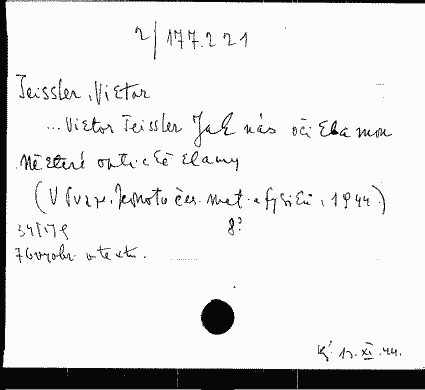 2/177.221
Teissler, Victor
... Victor Teissler Jak nás oči klamou
některé optické klamy
(V Praze, Jednota čes. mat. a fysiků, 1944)
34 8°
76 vyobr. v textu.
K 13.XI.44.